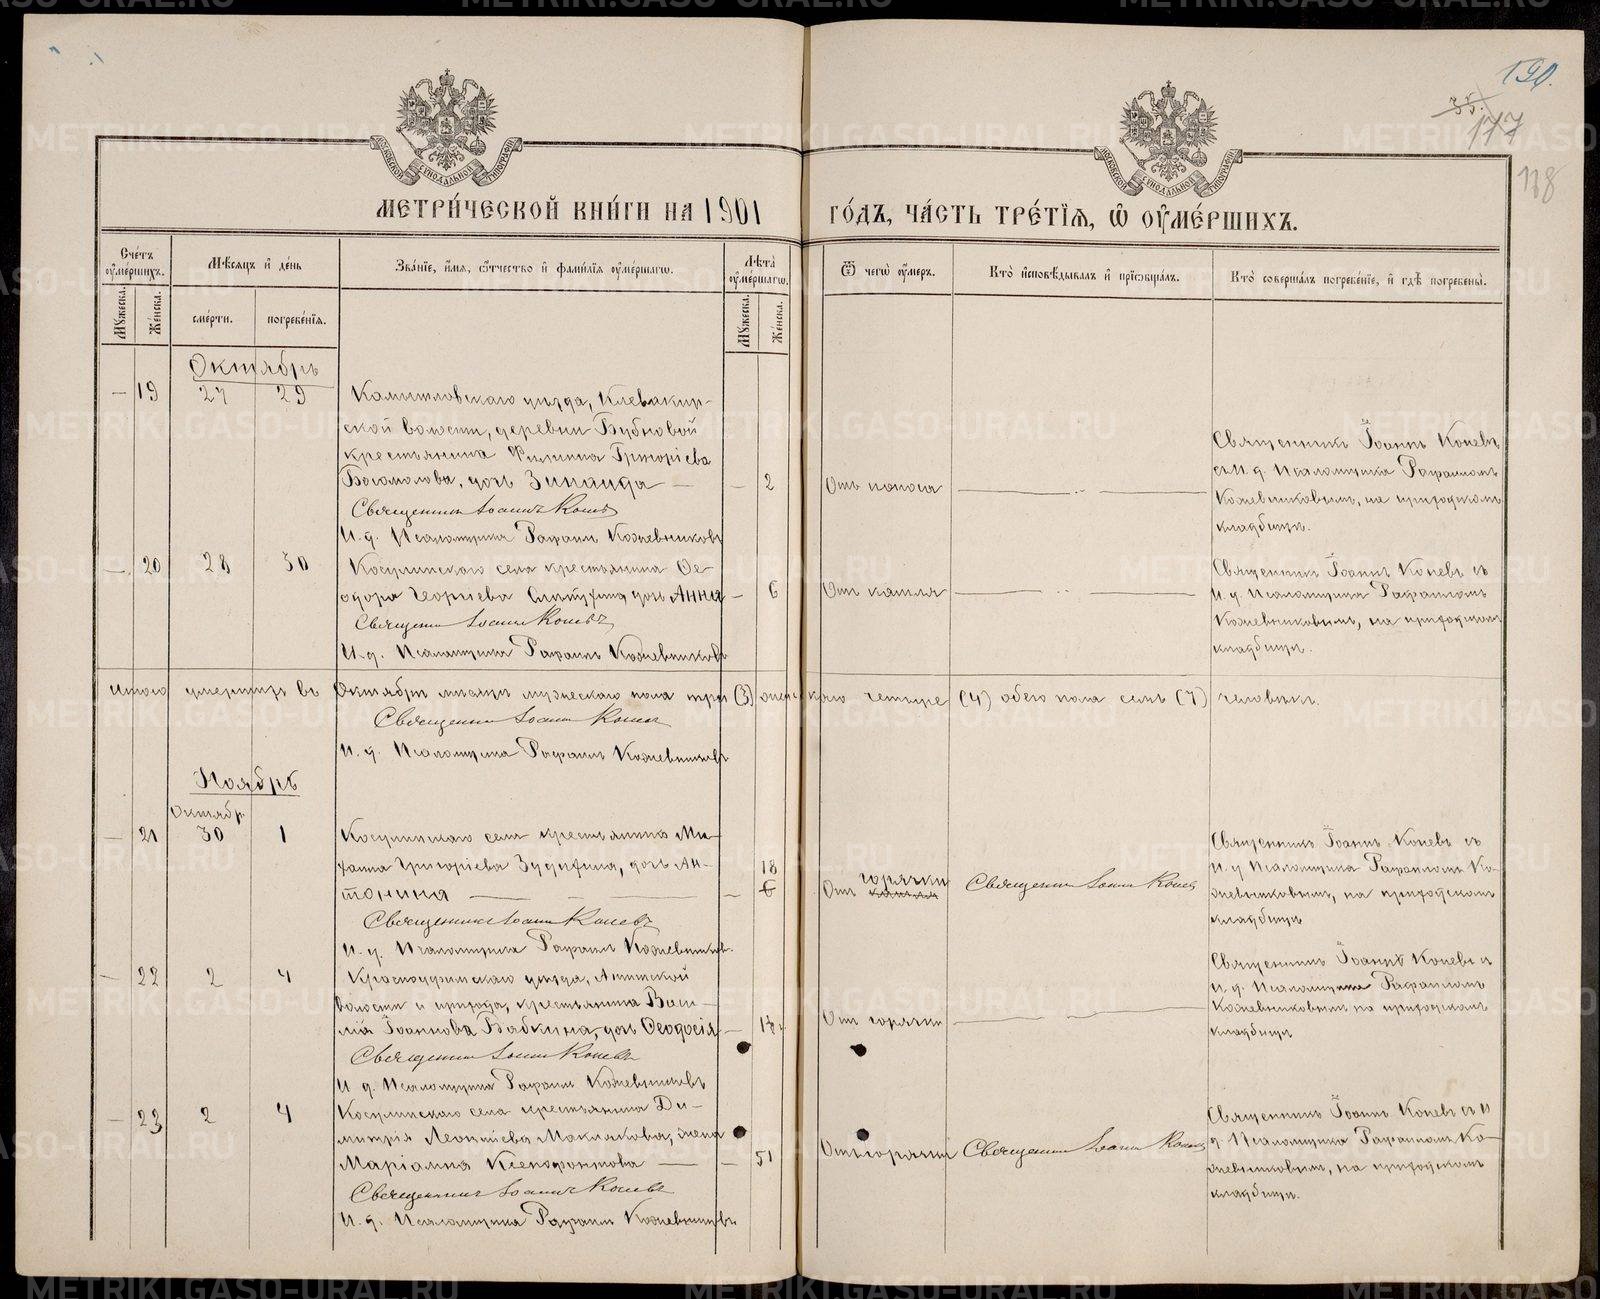 190.
35.
177
118
МЕТРИ́ЧЕСКОЙ КНИ́ГИ НА 1901
ГО́ДЪ, ЧА́СТЬ ТРЕ́ТЇѦ, Ѡ҆ ОУ҆МЕ́РШИХЪ.
Сче́тъ оу҆ме́ршихъ.
Мꙋжеска.
Же́нска.
Мѣ́сяцъ и҆ де́нь
сме́рти.
погребе́нїѧ.
Зва́нїе, и҆́мѧ, ѻ҆́тчество и҆ фами́лїѧ оу҆ме́ршагѡ.
Лѣ̑та оу҆ме́ршагѡ.
Мꙋжеска.
Же́нска.
Ѿ чегѡ̀ оу҆́меръ.
Кто̀ и҆сповѣ́дывалъ и҆ прїѡбща́лъ.
Кто̀ соверша́лъ погребе́нїе, и҆ гдѣ̀ погребены̀.
Октябрь
— 19 27 29
Камышловскаго уѣзда, Клевакин-
ской волости, деревни Бубновой
крестьянина Филиппа Григоріева
Богомолова, дочь Зинаида — — 2
Отъ поноса
Священникъ Іоаннъ Коневъ
И. д. Псаломщика Рафаилъ Кожевниковъ
Священникъ Іоаннъ Коневъ
съ И. д. Псаломщика Рафаиломъ
Кожевниковымъ, на приходскомъ
кладбищѣ.
— 20 28 30
Косулинскаго села крестьянина Ѳе-
одора Георгіева дочь Анна — 6
Отъ кашля
Священникъ Іоаннъ Коневъ
И. д. Псаломщика Рафаилъ Кожевниковъ
Священникъ Іоаннъ Коневъ съ
И. д. Псаломщика Рафаиломъ
Кожевниковымъ, на приходскомъ
кладбищѣ.
Итого умершихъ въ Октябрѣ мѣсяцѣ мужескаго пола три (3) женскаго четыре (4) обего пола семь (7) человѣкъ.
Священникъ Іоаннъ Коневъ
И. д. Псаломщика Рафаилъ Кожевниковъ
Ноябрь
Октябр.
— 21 30 1
Косулинскаго села крестьянина Ми-
хаила Григоріева дочь Ан-
тонина — 18
6
Отъ горячки
кашля
Священникъ Іоаннъ Коневъ
Священникъ Іоаннъ Коневъ
И. д. Псаломщика Рафаилъ Кожевниковъ.
Священникъ Іоаннъ Коневъ съ
И. д Псаломщика Рафаиломъ Ко-
жевниковымъ, на приходскомъ
кладбищѣ
— 22 2 4
Красноуфимскаго уѣзда, Ачитской
волости и прихода, крестьянина Васи-
лія Іоаннова Бабкина, дочь Ѳеодосія —
Отъ горячки
Священникъ Іоаннъ Коневъ
И д. Псаломщика Рафаилъ Кожевниковъ
Священникъ Іоаннъ Коневъ съ
И. д. Псаломщика Рафаиломъ
Кожевниковымъ на приходскомъ
кладбищѣ
— 23 2 4
Косулинскаго села крестьянина Ди-
митрія Леонтіева Маклакова, жена
Маріамна Ксенофонтова — — 51
Отъ горячки
Священникъ Іоаннъ Коневъ
Священникъ Іоаннъ Коневъ
И. д. Псаломщика Рафаилъ Кожевниковъ
Священникъ Іоаннъ Коневъ съ И
д. Псаломщика Рафаиломъ Ко-
жевниковымъ, на приходскомъ
кладбищѣ.
METRIKI.GASO-URAL.RU